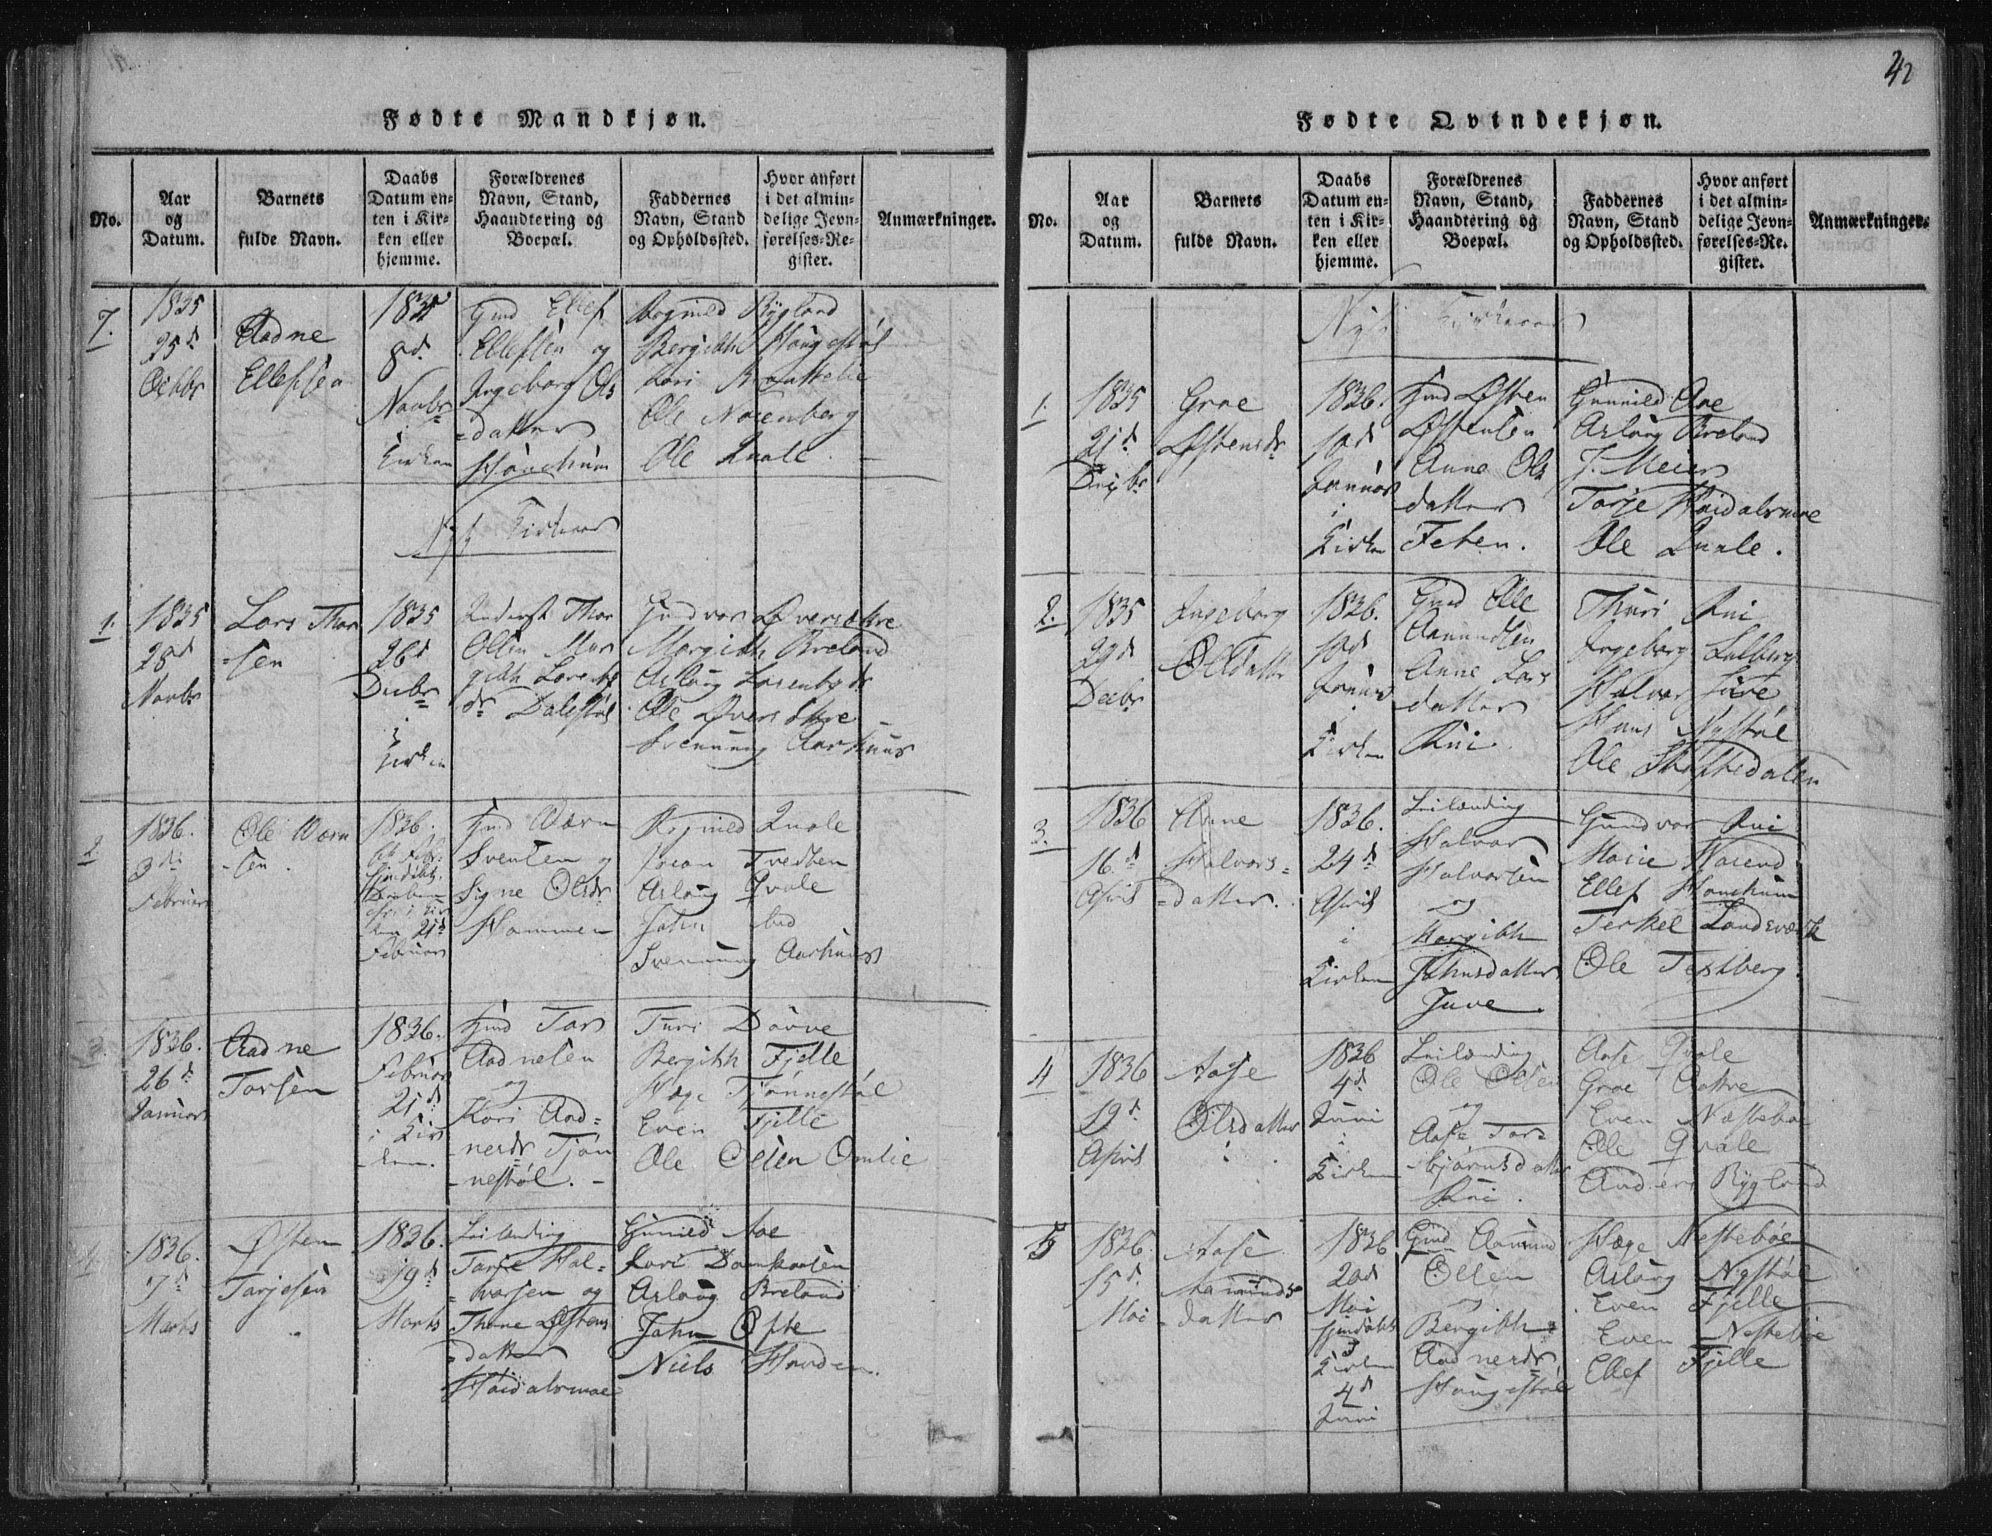 42
Fødte Mandkjøn.
No.
Aar
og
Datum.
Barnets
fulde Navn.
Daabs
Datum en-
ten i Kir-
ken eller
hjemme.
Forældrenes
Navn, Stand,
Haandtering og
Boepæl.
Faddernes
Navn, Stand
og Opholdssted.
Hvor anført
i det almin-
delige Jevn-
førelses-Re-
gister.
Anmærkninger.
7.
1835
25d
Octbr
Aadne
Ellefsen
1835
8d
Novbr
i
Kirken
Gmd Ellef
Ellefsen og
Ingeborg Ols
datter
Haughuus
Rognild Rygland
Bergith Haugestøl
Kari
Ole
Ole Quale
Nyt Kirkeaar
1.
1835
28d
Novbr
Lars Thor
sen
1835
26d
Decbr
i
Kirken
Thor
Olsen Mar
gith Lorents
dr Dalestøl
Gundvor Øverakre
Margith Breland
Aslaug Lorentsdr
Ole Øverakre
Svennung Aarhuus
2
1836.
3di
Februar
Ole Wærn
sen.
1836.
21d
Februar
Gmd Wærn
Svensen og
Signe Olsdr
Hammen
Rognild Quale
Joran Tvedten
Aslaug Qvale
John
Svennung Aarhuus
3.
1836.
26d
Januar
Aadne
Tarjsen
1836.
Februar
21d
i Kir
ken.
Gmd Tar
Aadnesen
og
Kari Aad-
nesdr Tjøn
nestøl.
Turi
Bergith Fjelle
Hæge Tjønnestøl
Even Fjelle
Ole Olsen Omlie
4
1836.
7d
Marts
Østen
Tarjesen
1836.
19d
Marts
Leilending
Tarje Hal-
vorsen og
Thone Østens
datter
Haidalsmoe
Gunild Aae
Kari
Aslaug Breland
John Ofte
Niels
Fødte Qvindekjøn.
No.
Aar
og
Datum.
Barnets
fulde Navn.
Daabs
Datum en-
ten i Kir-
ken eller
hjemme.
Forældrenes
Navn, Stand,
Haandtering og
Boepæl.
Faddernes
Navn, Stand
og Opholdssted.
Hvor anført
i det almin-
delige Jevn-
førelses-Re-
gister.
Anmærkninger.
Nyt Kirkeaar
1.
1835
21d
Decbr
Groe
Østensdr
1836.
10d
Januar
i
Kirken
Gmd Østen
Østensen
Anne Ols
datter
Feten.
Gunnild Aae
Aslaug Breland
J. Meier
Tarje Haidalsmoe
Ole Quale.
2.
1835
29d
Decbr
Ingeborg
Olsdatter
1836.
10d
Januar
i
Kirken
Gmd Ole
Aamundsen
Anne Lars
datter
Rui.
Thuri Rui
Ingeborg Lulberg
Halvor Juve
Hans Nystøl
Ole
3.
1836
16d
April
Anne
Halvors-
datter.
1836.
24d
April
i
Kirken
Leilending
Halvor
Halvorsen
og
Margith
Johnsdatter
Juve
Gundvor Rui
Marie
Ellef Haughuus
Terkel Landsværk
Ole Testberg
4
1836
19d
April
Aase
Olsdatter
1836
4d
Juni
i
Kirken
Leilending
Ole Olsen
og
Aase Tor
bjørnsdatter
Rui.
Aase Qvale
Groe Aakre
Even Næsteboe
Ole Qvale
Anders Rygland
5
1836.
15d
Mai
Aase
Aamunds
datter
1836
20d
Mai
hjemdøbt
Kirken
4d
Juni
Gmd Aamund
Olsen
og
Bergith
Aadnesdr
Haugestøl
Hæge Nestebøe
Aslaug Nystøl
Even Fjelle
Even Nestebøe
Ellef Fjelle